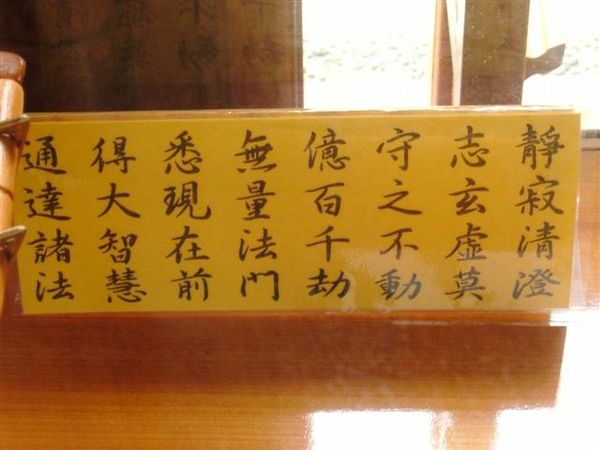 靜寂清澄
志玄虛莫
守之不動
億百千劫
無量法門
悉現在前
得大智慧
通達諸法